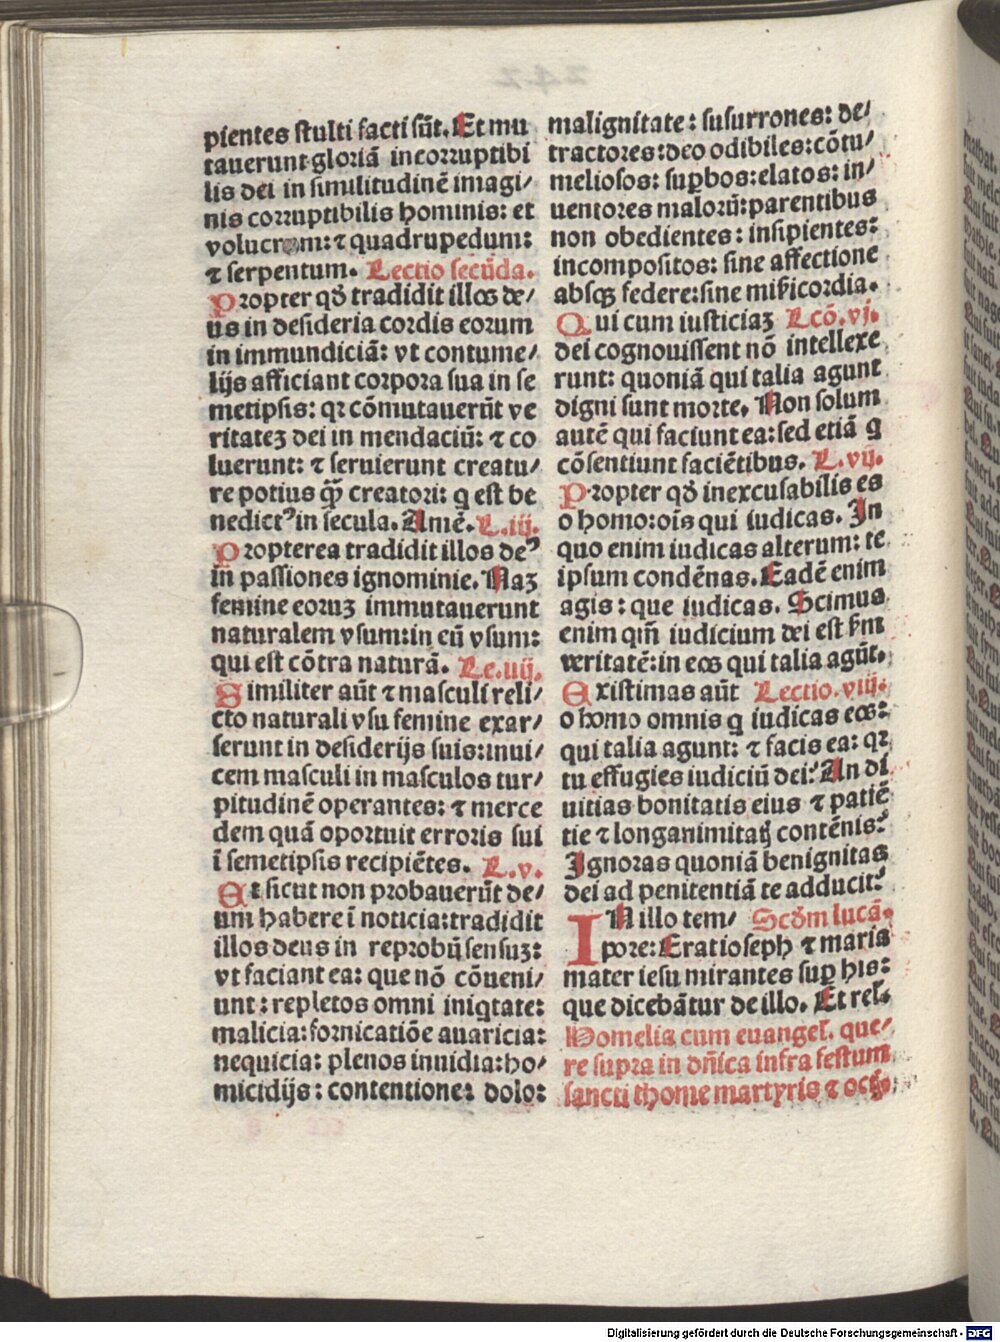 pientes stulti facti sūt. Et mu
tauerunt gloriā incorruptibi
lis dei in similitudinē imagi/
nis corruptibilis hominis: et
volucrum: ⁊ quadrupedum:
⁊ serpentum. Lectio secūda.
Propter qd̄ tradidit illos de/
us in desideria cordis eorum
in immundiciā: vt contume/
lijs afficiant corpora sua in se
metipsis: qꝛ cōmutauerūt ve
ritateꝫ dei in mendaciū: ⁊ co
luerunt: ⁊ seruierunt creatu/
re potius qͣꝫ creatori: q est be
nedictꝰ in secula. Amē. L.iij.
Propterea tradidit illos deꝰ
in passiones ignominie. Naꝫ
femine eoruꝫ immutauerunt
naturalem vsum: in eū vsum:
qui est cōtra naturā. Le.iiij.
Similiter aūt ⁊ masculi reli/
cto naturali vsu femine exar/
serunt in desiderijs suis: inui/
cem masculi in masculos tur/
pitudinē operantes: ⁊ merce
dem quā oportuit erroris sui
ī semetipsis recipiētes. L.v.
Et sicut non probauerūt de/
um habere ī noticia: tradidit
illos deus in reprobū sensuꝫ:
vt faciant ea: que nō cōueni/
unt: repletos omni iniqtate:
malicia: fornicatiōe auaricia:
nequicia: plenos inuidia: ho/
micidijs: contentione: dolo:
malignitate: susurrones: de/
tractores: deo odibiles: cōtu/
meliosos: suꝑbos: elatos: in/
uentores malorū: parentibus
non obedientes: insipientes:
incompositos: sine affectione
absqꝫ federe: sine mīcordia.
Qui cum iusticiaꝫ Lcō.vj.
dei cognouissent nō intellexe
runt: quoniā qui talia agunt
digni sunt morte. Non solum
autē qui faciunt ea: sed etiā q
cōsentiunt faciētibus. L.vij.
Propter qd̄ inexcusabilis es
o homo: oīs qui iudicas. In
quo enim iudicas alterum: te
ipsum condēnas. Eadē enim
agis: que iudicas. Scimus
enim qm̄ iudicium dei est ẜm
veritatē: in eos qui talia agūt.
Existimas aūt Lectio.viij.
o homo omnis q iudicas eos:
qui talia agunt: ⁊ facis ea: qꝛ
tu effugies iudiciū dei? An di
uitias bonitatis eius ⁊ patiē
tie ⁊ longanimitatꝭ contēnis?
Ignoras quoniā benignitas
dei ad penitentiā te adducit?
IN illo tem/ Scd̄m lucā.
pore: Erat ioseph ⁊ maria
mater iesu mirantes suꝑ his:
que dicebātur de illo. Et rel̄.
Homelia cum euangel̄. que/
re supra in dn̄ica infra festum
sancti thome martyris ⁊ octꝭ.
Digitalisierung gefördert durch die Deutsche Forschungsgemeinschaft - DFG